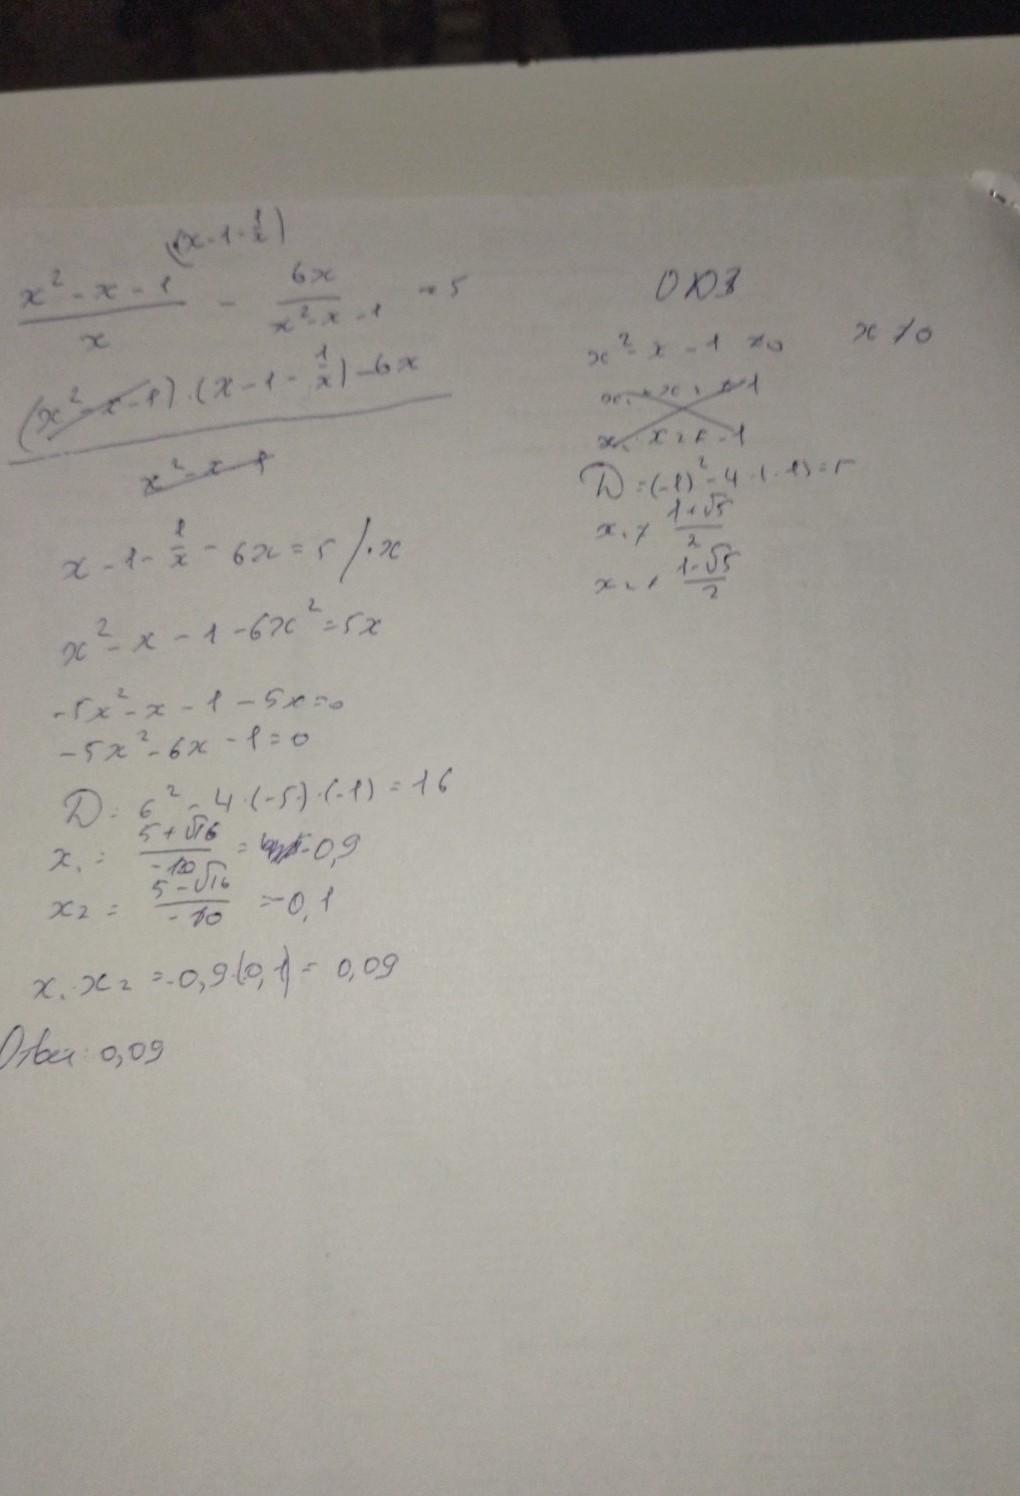 (x-1-1/x)
(x²-x-1)/x - 6x/(x²-x-1) = 5
((x²-x-1)·(x-1-1/x)-6x)/(x²-x-1)
x-1-1/x-6x=5 /·x
x²-x-1-6x²=5x
-5x²-x-1-5x=0
-5x²-6x-1=0
D=6²-4·(-5)·(-1)=16
x₁=(5+√16)/-10=-0,9
x₂=(5-√16)/-10=-0,1
x₁·x₂=-0,9·(0,1)=0,09
Ответ: 0,09
ОДЗ
x²-x-1≠0 x≠0
D=(-1)²-4·(-1)=5
x₁≠(1+√5)/2
x₂≠(1-√5)/2